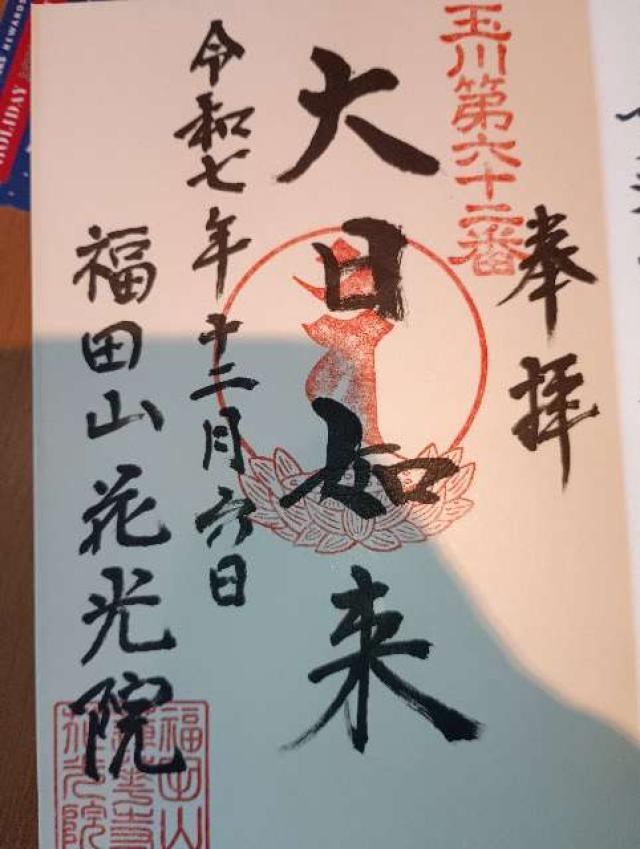 玉川第六十二番
奉拝
大日如来
令和七年十二月六日
福田山花光院
福田山
花光院
HOLIDAY
REWARDS